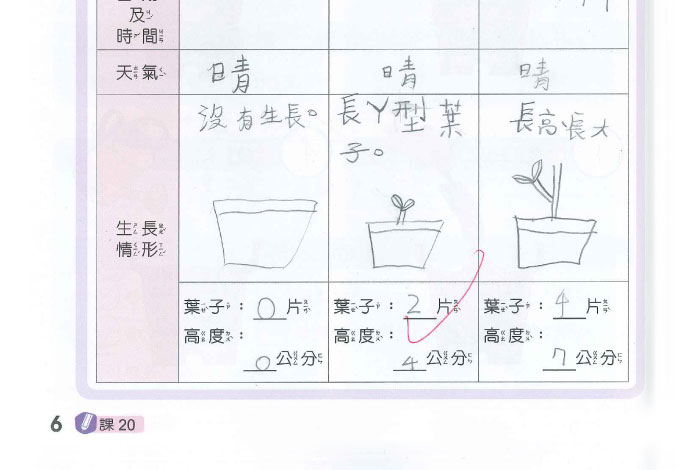 及
時間
天氣 晴 晴 晴
沒有生長。 長丫型葉 長高長大
子。
生長
情形
葉子：0片 葉子：2片 葉子：4片
高度： 高度： 高度：
0公分 4公分 7公分
6 課20